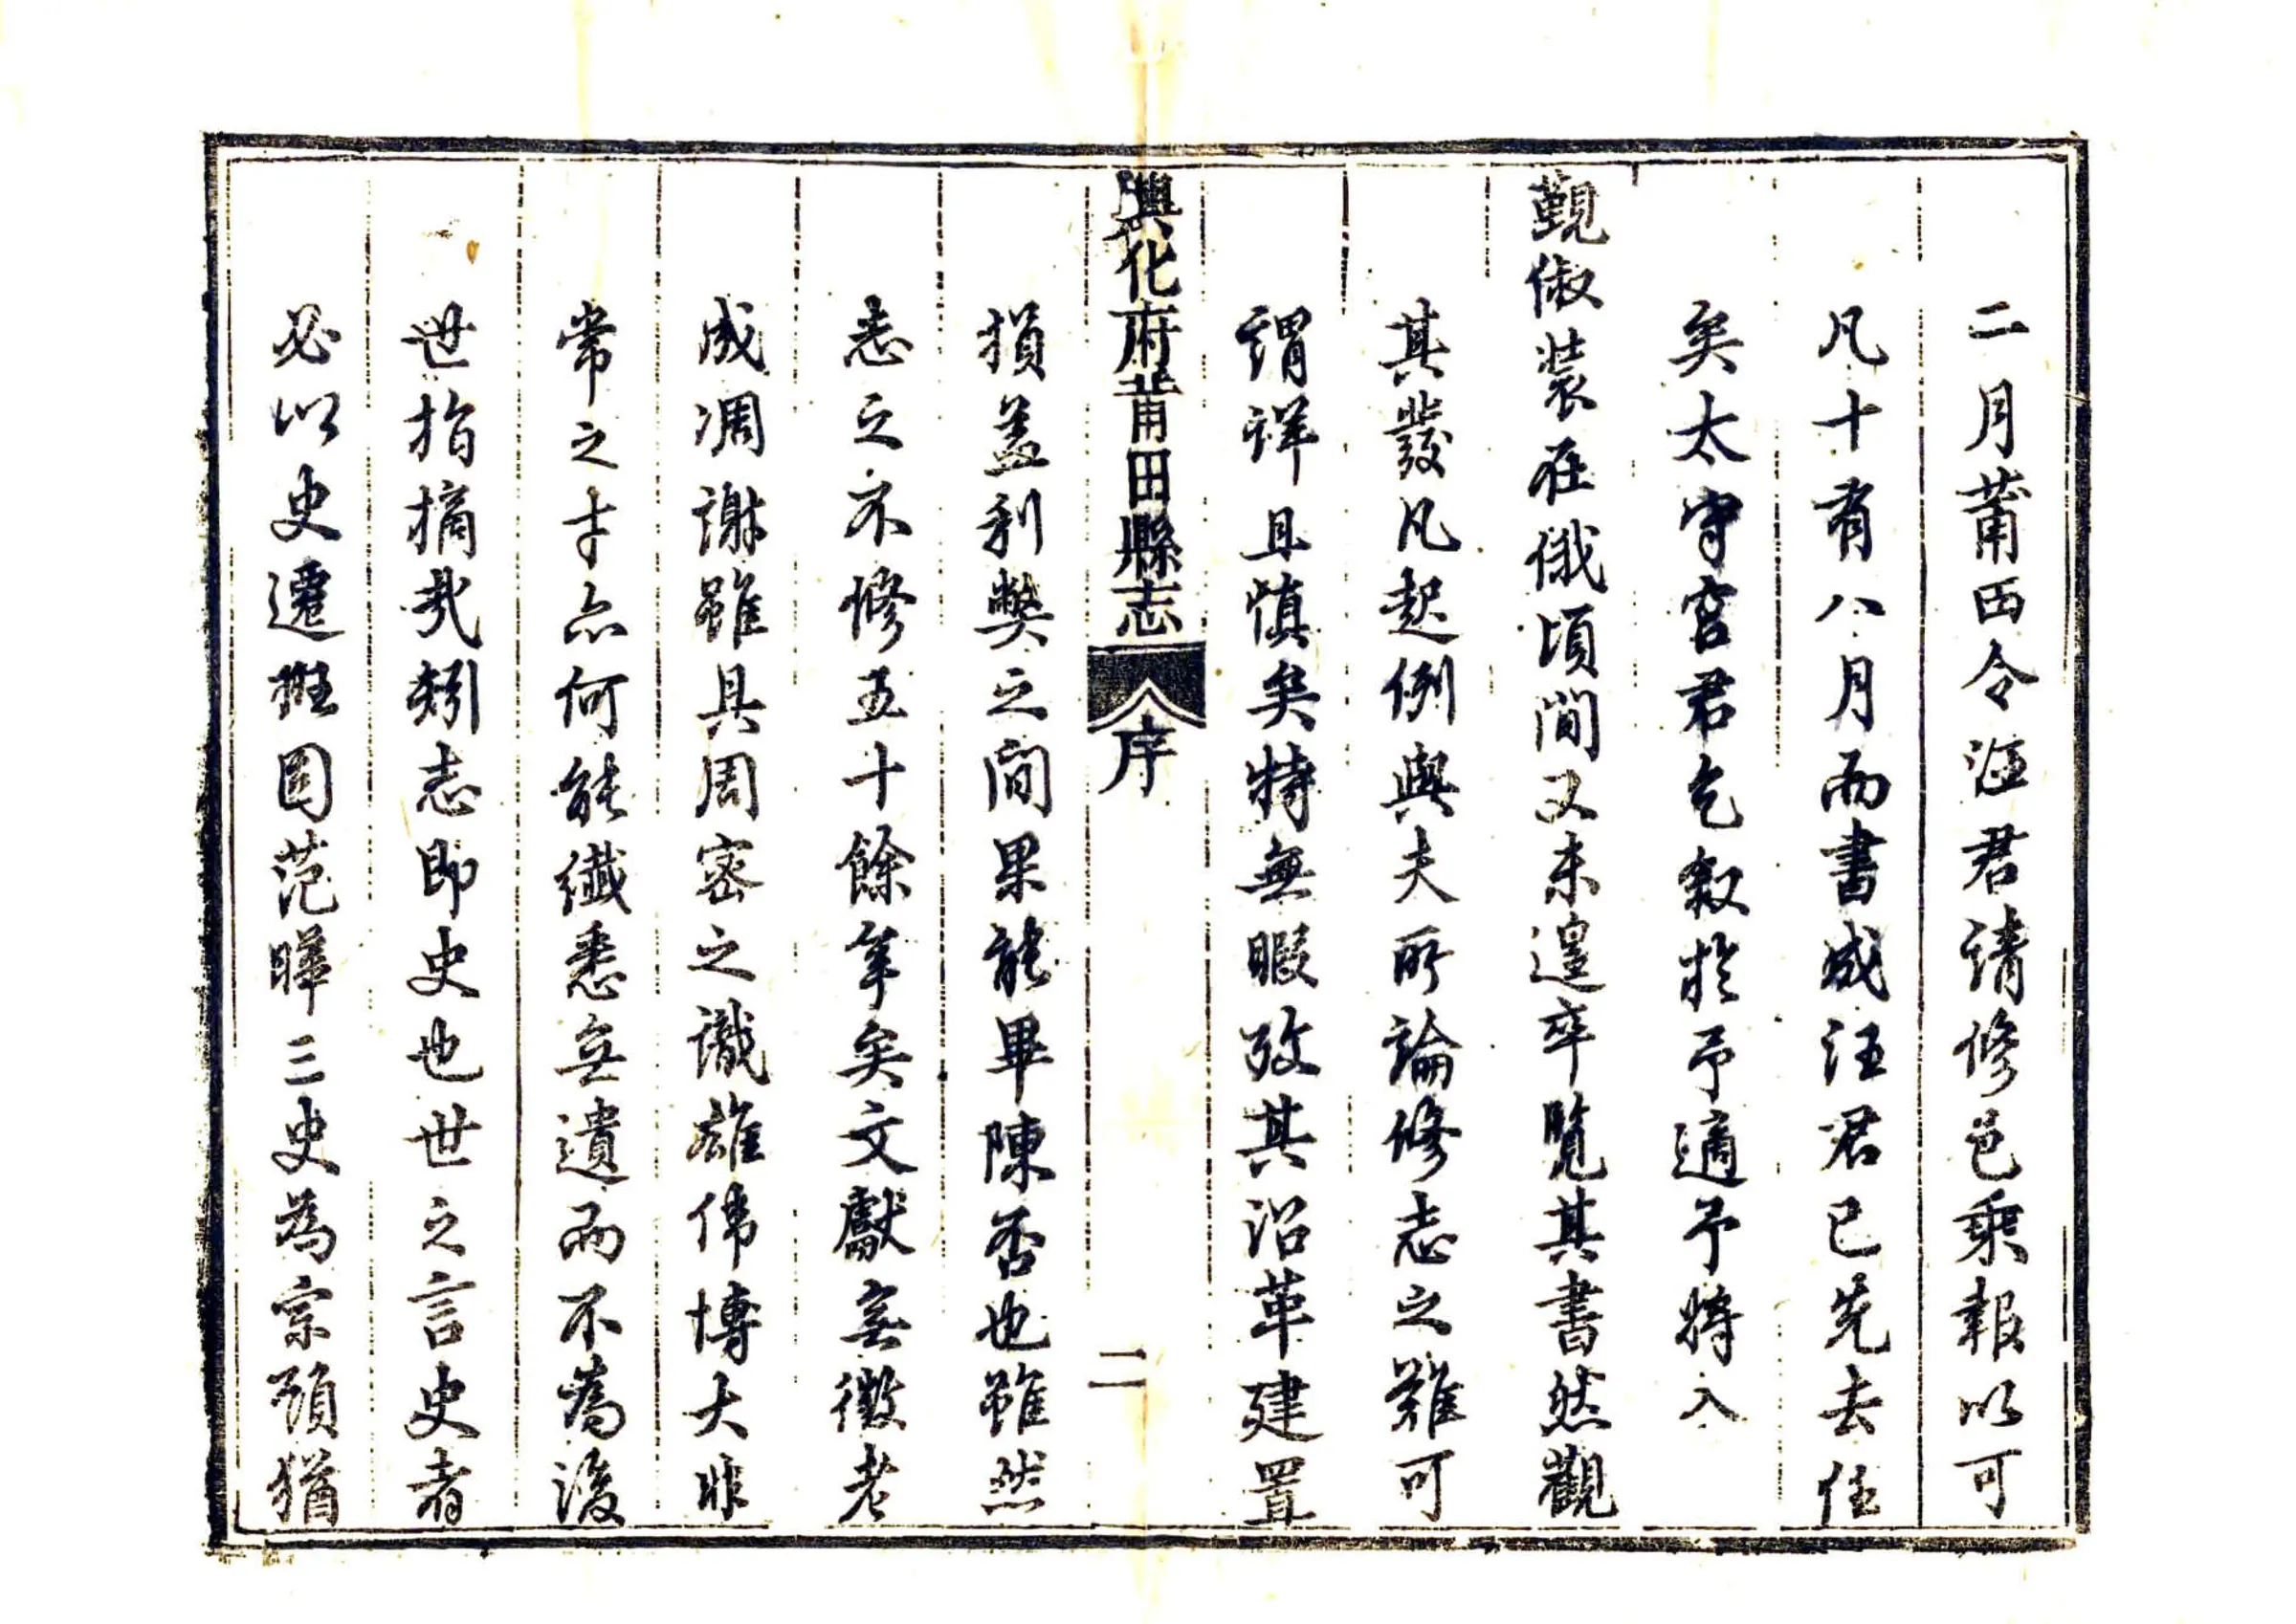 二月莆西令汪君請修邑乘報以可
凡十有八月而書成汪君已先去任
矣太守宮君乞叙於予適予將入
覲俶装在俄頃間又未遑卒覽其書然觀
其發凡起例與夫所論修志之難可
謂詳且慎矣特無暇攷其沿革建置
興化府莆田縣志
序
二
損益利弊之間果能畢陳否也雖然
志之不修五十餘年矣文獻無徵老
成凋謝雖具周密之識雄偉博大非
常之才亦何能纖悉無遺而不為後
世指摘哉矧志即史也世之言史者
必以史遷班固范曄三史為宗頋猶